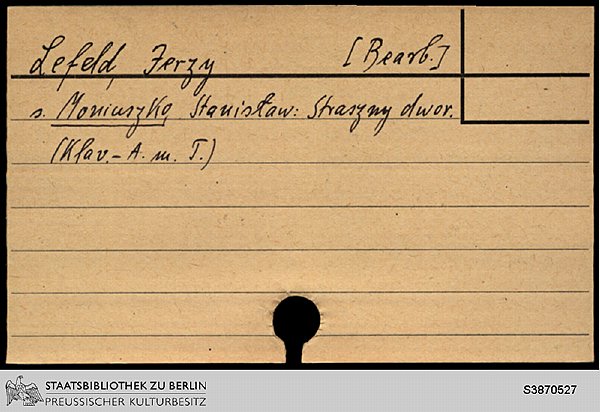 Lefeld, Jerzy [Bearb.]
s. Moniuszko, Stanisław: Straszny dwor.
(Klav.-A. m. T.)
STAATSBIBLIOTHEK ZU BERLIN
PREUSSISCHER KULTURBESITZ
S3870527